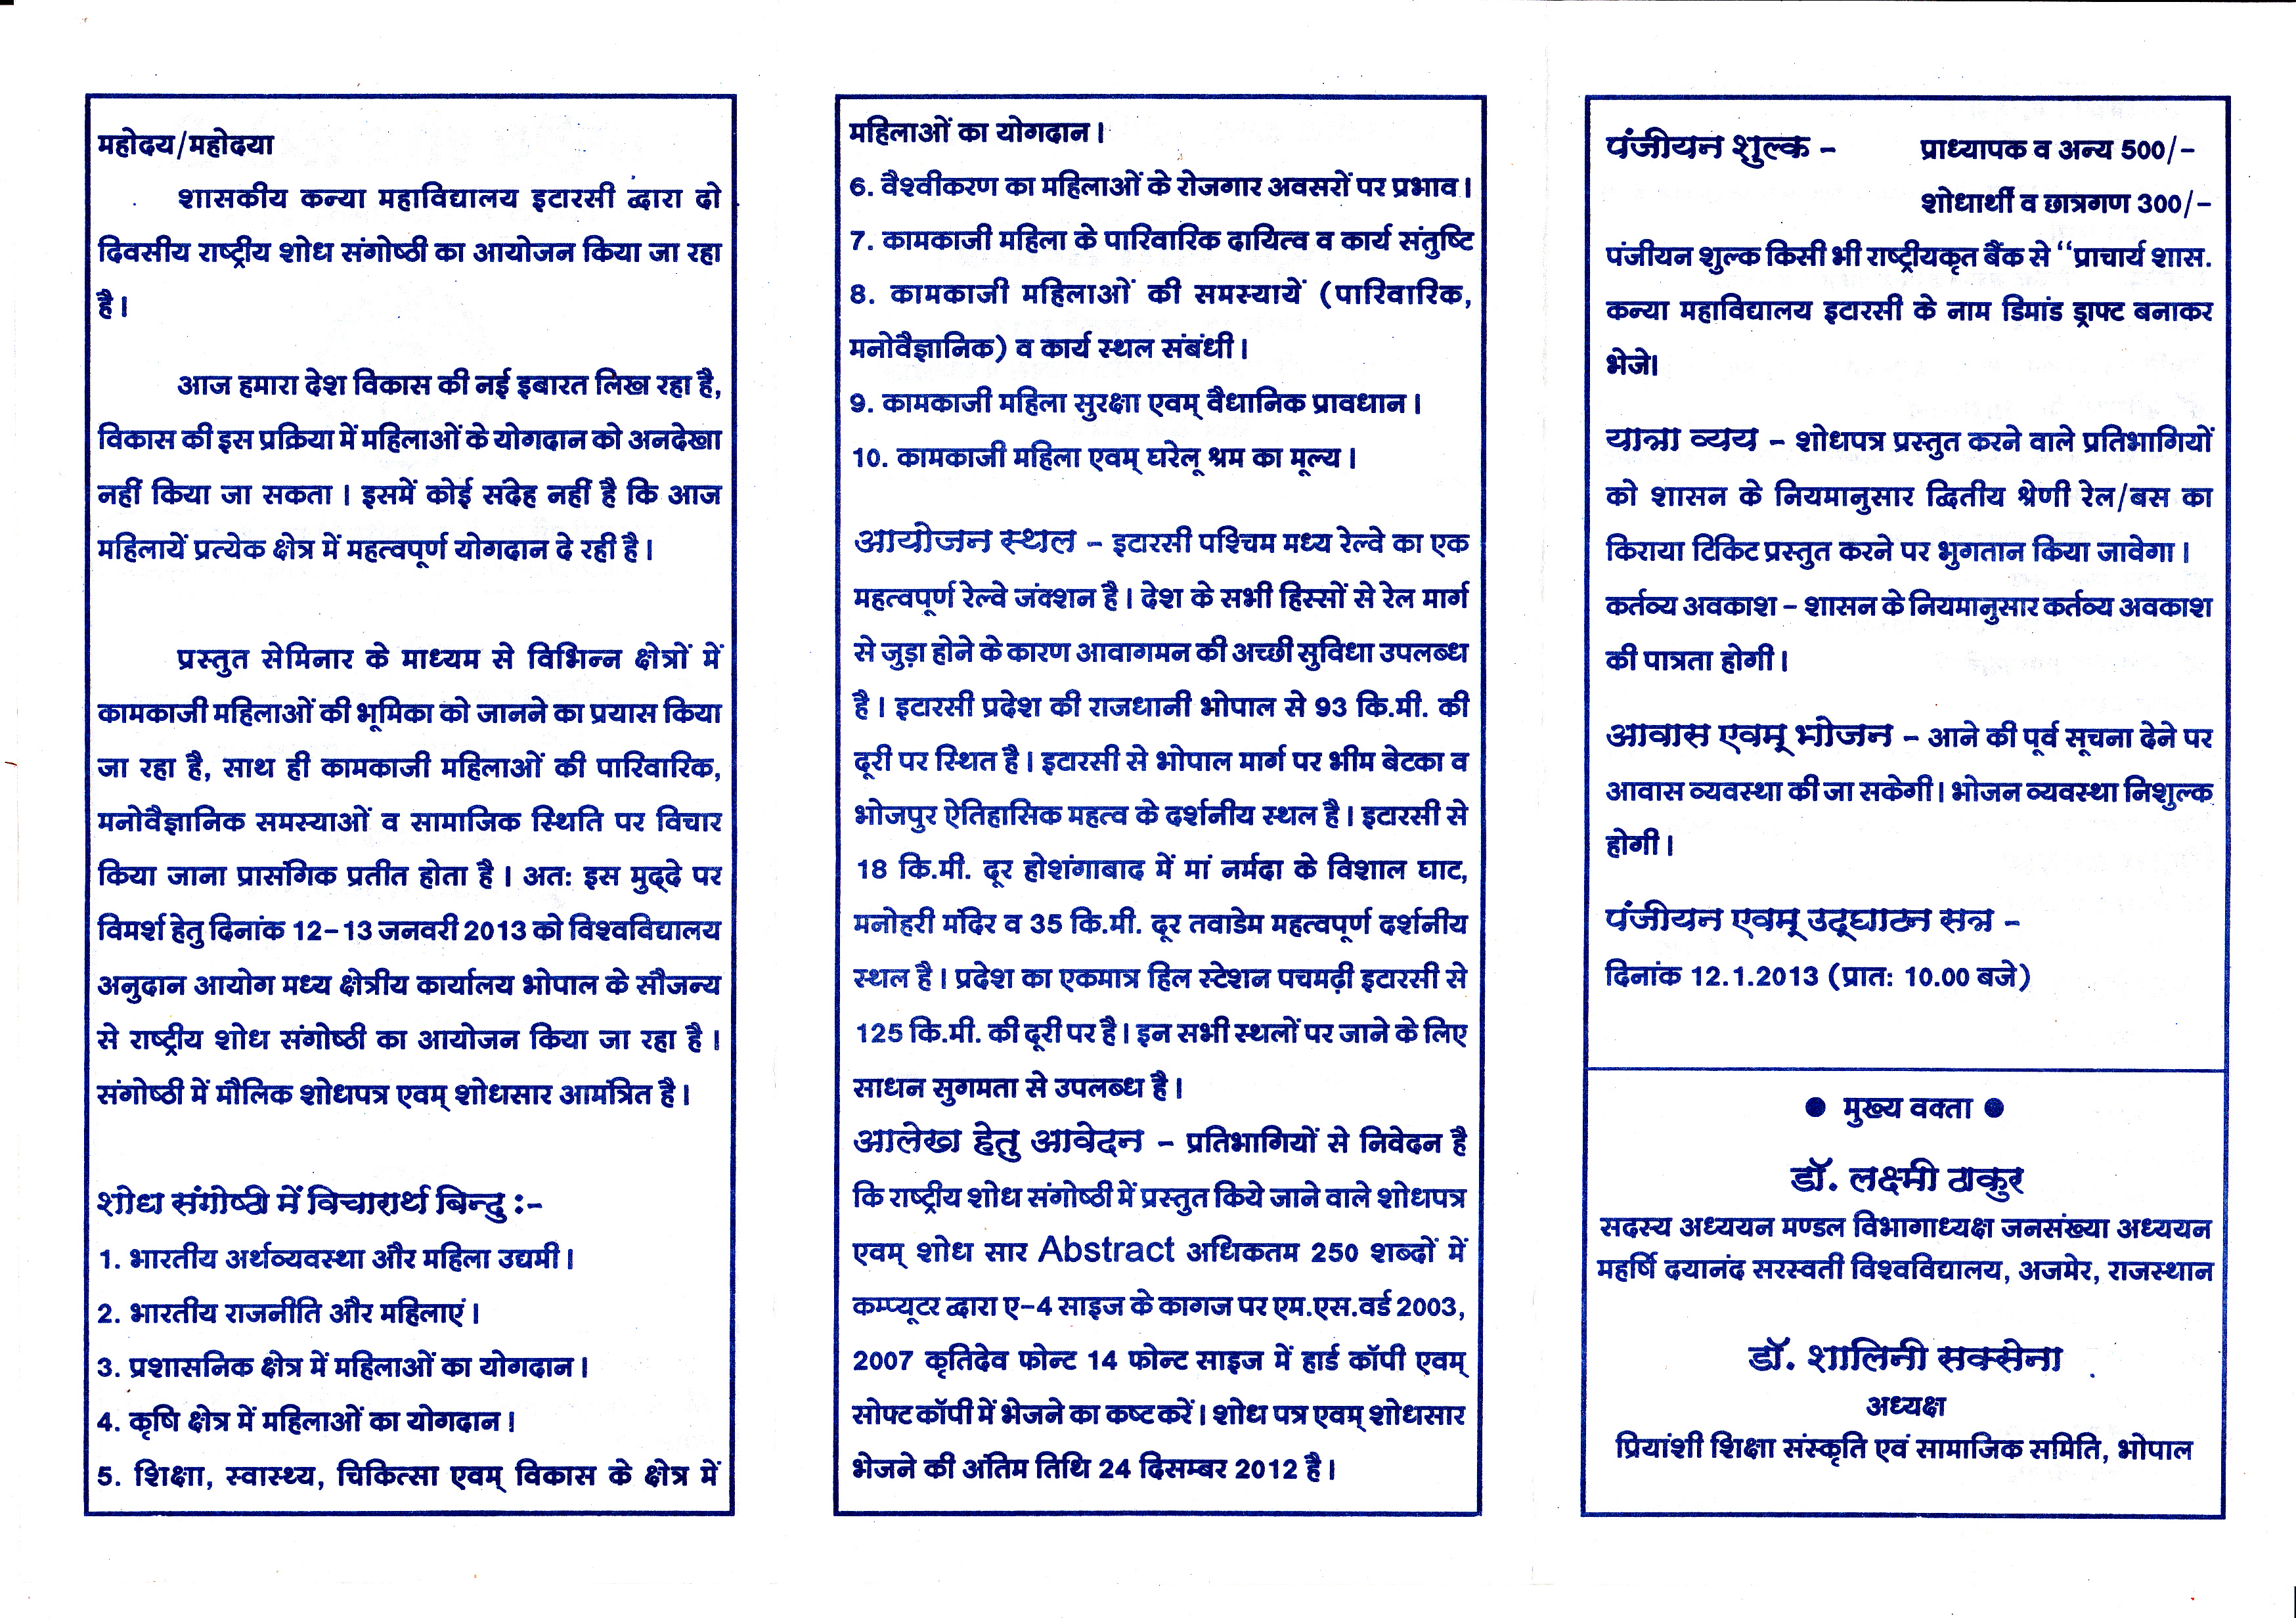 महोदय/महोदया
शासकीय कन्या महाविद्यालय इटारसी द्वारा दो
दिवसीय राष्ट्रीय शोध संगोष्ठी का आयोजन किया जा रहा
है।
आज हमारा देश विकास की नई इबारत लिख रहा है,
विकास की इस प्रक्रिया में महिलाओं के योगदान को अनदेखा
नहीं किया जा सकता । इसमें कोई संदेह नहीं है कि आज
महिलायें प्रत्येक क्षेत्र में महत्वपूर्ण योगदान दे रही है।
प्रस्तुत सेमिनार के माध्यम से विभिन्न क्षेत्रों में
कामकाजी महिलाओं की भूमिका को जानने का प्रयास किया
जा रहा है, साथ ही कामकाजी महिलाओं की पारिवारिक,
मनोवैज्ञानिक समस्याओं व सामाजिक स्थिति पर विचार
किया जाना प्रासंगिक प्रतीत होता है । अतः इस मुद्दे पर
विमर्श हेतु दिनांक 12-13 जनवरी 2013 को विश्वविद्यालय
अनुदान आयोग मध्य क्षेत्रीय कार्यालय भोपाल के सौजन्य
से राष्ट्रीय शोध संगोष्ठी का आयोजन किया जा रहा है।
संगोष्ठी में मौलिक शोधपत्र एवम् शोधसार आमंत्रित है।
शोध संगोष्ठी में विचारार्थ बिन्दु :-
1. भारतीय अर्थव्यवस्था और महिला उद्यमी।
2. भारतीय राजनीति और महिलाएं।
3. प्रशासनिक क्षेत्र में महिलाओं का योगदान।
4. कृषि क्षेत्र में महिलाओं का योगदान।
5. शिक्षा, स्वास्थ्य, चिकित्सा एवम् विकास के क्षेत्र में
महिलाओं का योगदान।
6. वैश्वीकरण का महिलाओं के रोजगार अवसरों पर प्रभाव।
7. कामकाजी महिला के पारिवारिक दायित्व व कार्य संतुष्टि
8. कामकाजी महिलाओं की समस्यायें (पारिवारिक,
मनोवैज्ञानिक) व कार्य स्थल संबंधी।
9. कामकाजी महिला सुरक्षा एवम् वैधानिक प्रावधान।
10. कामकाजी महिला एवम् घरेलू श्रम का मूल्य।
आयोजन स्थल - इटारसी पश्चिम मध्य रेल्वे का एक
महत्वपूर्ण रेल्वे जंक्शन है। देश के सभी हिस्सों से रेल मार्ग
से जुड़ा होने के कारण आवागमन की अच्छी सुविधा उपलब्ध
है। इटारसी प्रदेश की राजधानी भोपाल से 93 कि.मी. की
दूरी पर स्थित है। इटारसी से भोपाल मार्ग पर भीम बेटका व
भोजपुर ऐतिहासिक महत्व के दर्शनीय स्थल है। इटारसी से
18 कि.मी. दूर होशंगाबाद में मां नर्मदा के विशाल घाट,
मनोहरी मंदिर व 35 कि.मी. दूर तवाडेम महत्वपूर्ण दर्शनीय
स्थल है। प्रदेश का एकमात्र हिल स्टेशन पचमढ़ी इटारसी से
125 कि.मी. की दूरी पर है। इन सभी स्थलों पर जाने के लिए
साधन सुगमता से उपलब्ध है।
आलेख हेतु आवेदन - प्रतिभागियों से निवेदन है
कि राष्ट्रीय शोध संगोष्ठी में प्रस्तुत किये जाने वाले शोधपत्र
एवम् शोध सार Abstract अधिकतम 250 शब्दों में
कम्प्यूटर द्वारा ए-4 साइज के कागज पर एम.एस.वर्ड 2003,
2007 कृतिदेव फोन्ट 14 फोन्ट साइज में हार्ड कॉपी एवम्
सोफ्ट कॉपी में भेजने का कष्ट करें। शोध पत्र एवम् शोधसार
भेजने की अंतिम तिथि 24 दिसम्बर 2012 है।
पंजीयन शुल्क - प्राध्यापक व अन्य 500/-
शोधार्थी व छात्रगण 300/-
पंजीयन शुल्क किसी भी राष्ट्रीयकृत बैंक से “प्राचार्य शास.
कन्या महाविद्यालय इटारसी के नाम डिमांड ड्राफ्ट बनाकर
भेजे।
यात्रा व्यय - शोधपत्र प्रस्तुत करने वाले प्रतिभागियों
को शासन के नियमानुसार द्वितीय श्रेणी रेल/बस का
किराया टिकिट प्रस्तुत करने पर भुगतान किया जावेगा।
कर्तव्य अवकाश - शासन के नियमानुसार कर्तव्य अवकाश
की पात्रता होगी।
आवास एवम् भोजन - आने की पूर्व सूचना देने पर
आवास व्यवस्था की जा सकेगी। भोजन व्यवस्था निशुल्क
होगी।
पंजीयन एवम् उद्घाटन सत्र -
दिनांक 12.1.2013 (प्रातः 10.00 बजे)
● मुख्य वक्ता ●
डॉ. लक्ष्मी ठाकुर
सदस्य अध्ययन मण्डल विभागाध्यक्ष जनसंख्या अध्ययन
महर्षि दयानंद सरस्वती विश्वविद्यालय, अजमेर, राजस्थान
डॉ. शालिनी सक्सेना
अध्यक्ष
प्रियांशी शिक्षा संस्कृति एवं सामाजिक समिति, भोपाल